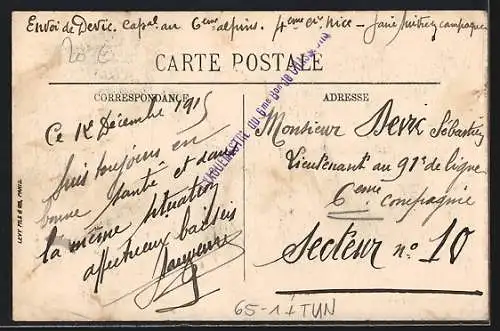 Envoi de Devic. Capal. au 6eme alpins. 4eme Cie Nice –
20 E
CARTE POSTALE
CORRESPONDANCE
ADRESSE
Ce 12 Décembre 1915
Suis toujours en
bonne santé et dans
la même situation
affectueux baisers
VAGUEMESTRE DU 6me
Monsieur Devic Sébastien
Lieutenant au 91e de ligne
6eme compagnie
Secteur no 10
LEVY FILS & CIE, PARIS
65-1 TUN